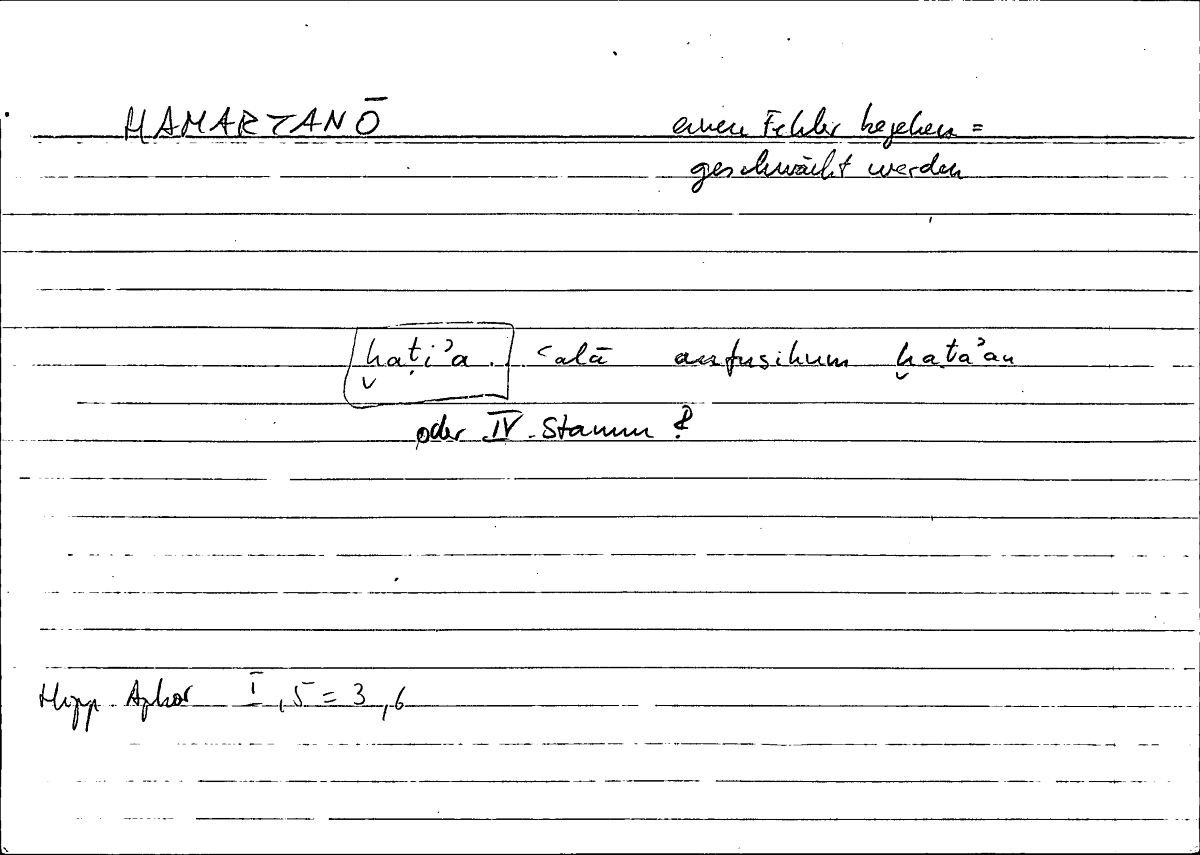 HAMARTANŌ einen Fehler begehen =
geschwächt werden
ḫaṭi’a ‘alā anfusihum ḫaṭa’an
oder IV. Stamm ?
Hipp. Aphor I, 5 = 3, 6